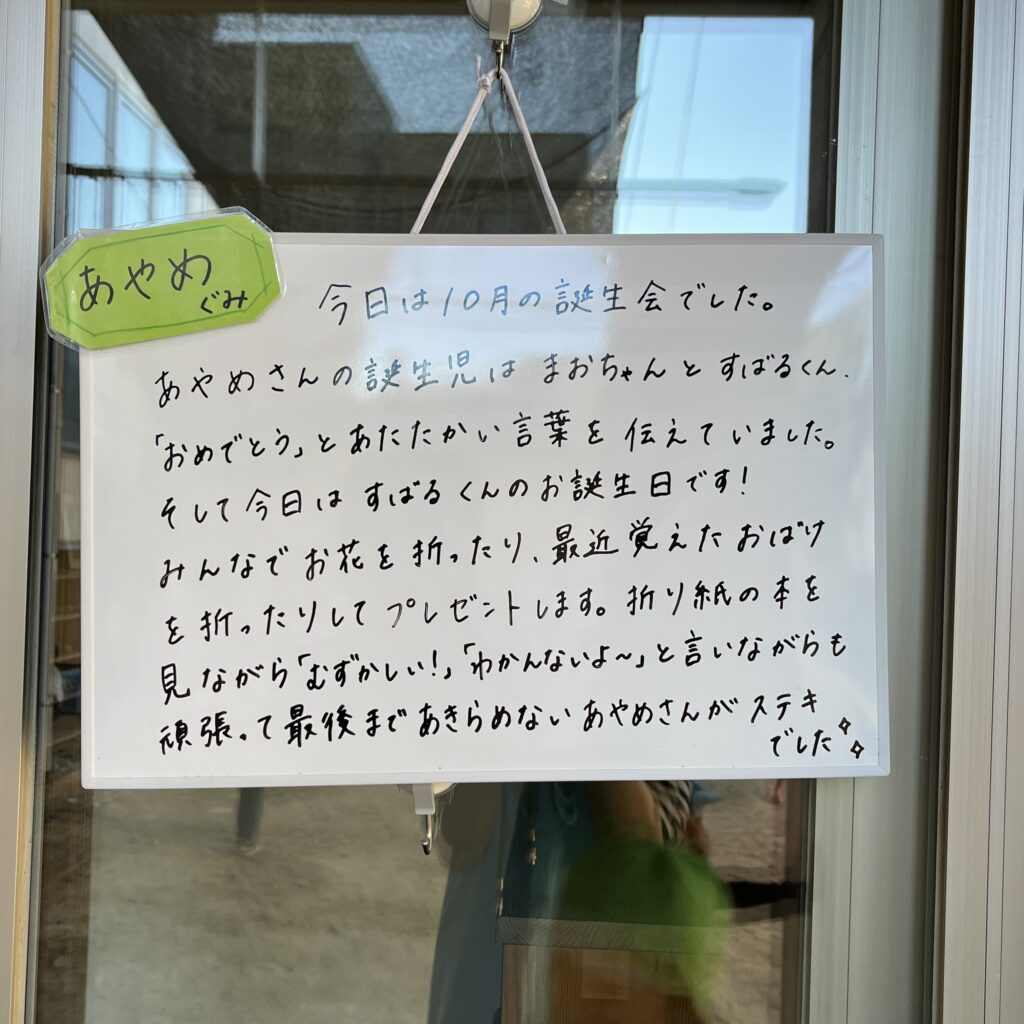 あやめ
ぐみ
今日は10月の誕生会でした。
あやめさんの誕生児は まおちゃんと すばるくん.
「おめでとう」と あたたかい 言葉を 伝えていました。
そして今日は すばるくんのお誕生日です!
みんなで お花を 折ったり、最近覚えた おばけ
を折ったりして プレゼントします。折り紙の本を
見ながら「むずかしい!」「わかんないよ～」と言いながらも
頑張って最後まで あきらめない あやめさんが ステキ
でした✧✧